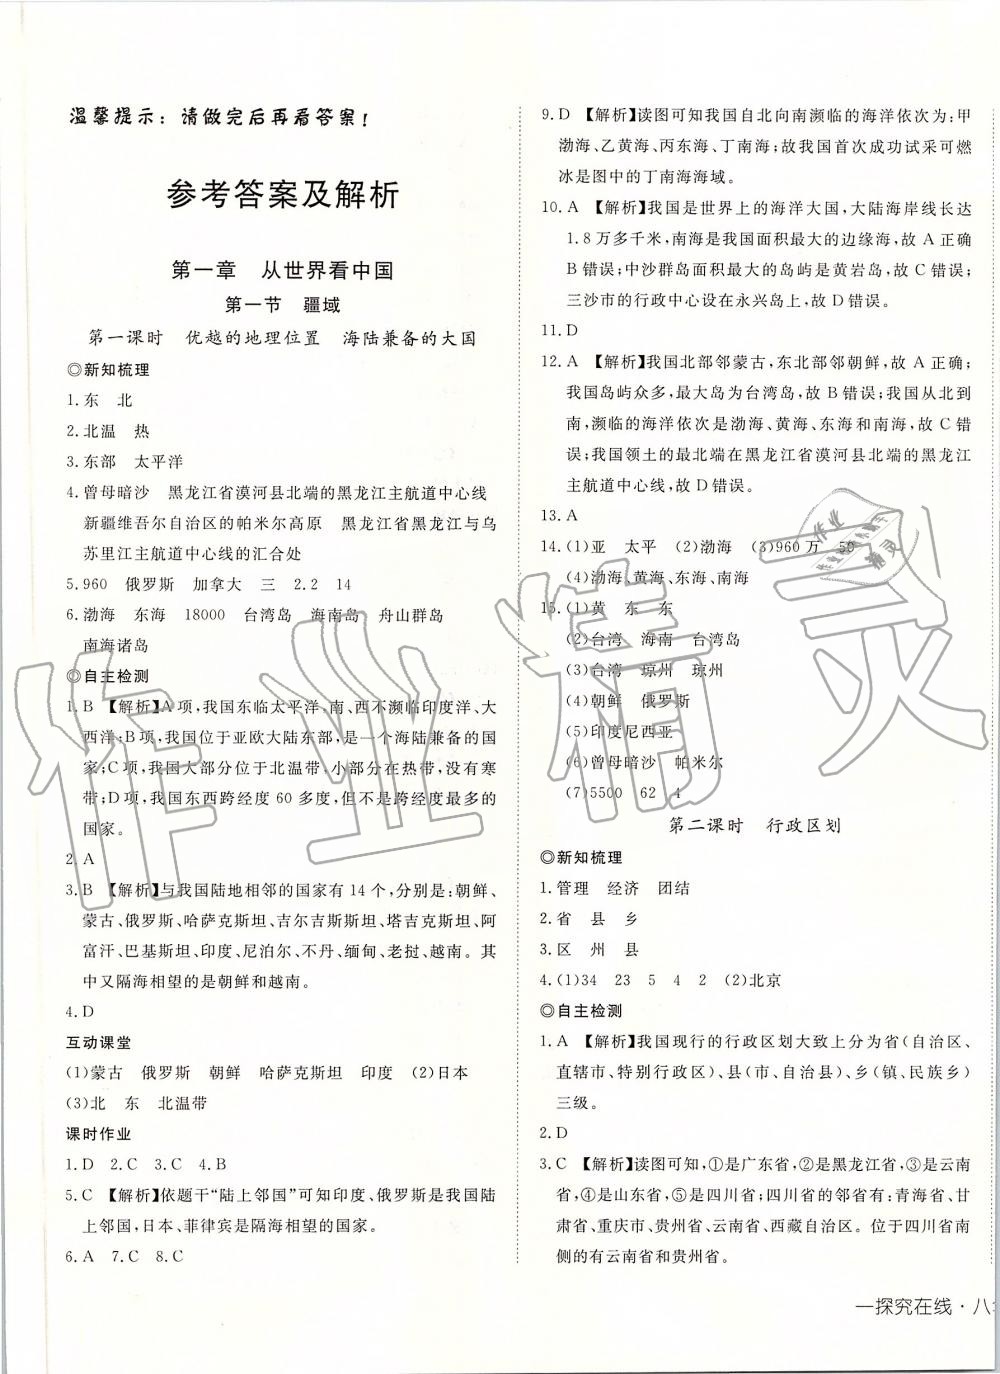 温馨提示：请做完后再看答案！
参考答案及解析
第一章　从世界看中国
第一节　疆域
第一课时　优越的地理位置　海陆兼备的大国
◎新知梳理
1.东　北
2.北温　热
3.东部　太平洋
4.曾母暗沙　黑龙江省漠河县北端的黑龙江主航道中心线
新疆维吾尔自治区的帕米尔高原　黑龙江省黑龙江与乌
苏里江主航道中心线的汇合处
5.960　俄罗斯　加拿大　三　2.2　14
6.渤海　东海　18000　台湾岛　海南岛　舟山群岛
南海诸岛
◎自主检测
1.B　【解析】A项,我国东临太平洋,南、西不濒临印度洋、大
西洋;B项,我国位于亚欧大陆东部,是一个海陆兼备的国
家;C项,我国大部分位于北温带,小部分在热带,没有寒
带;D项,我国东西跨经度60多度,但不是跨经度最多的
国家。
2.A
3.B　【解析】与我国陆地相邻的国家有14个,分别是:朝鲜、
蒙古、俄罗斯、哈萨克斯坦、吉尔吉斯斯坦、塔吉克斯坦、阿
富汗、巴基斯坦、印度、尼泊尔、不丹、缅甸、老挝、越南。其
中又隔海相望的是朝鲜和越南。
4.D
互动课堂
(1)蒙古　俄罗斯　朝鲜　哈萨克斯坦　印度　(2)日本
(3)北　东　北温带
课时作业
1.D　2.C　3.C　4.B
5.C　【解析】依题干“陆上邻国”可知印度、俄罗斯是我国陆
上邻国,日本、菲律宾是隔海相望的国家。
6.A　7.C　8.C
9.D　【解析】读图可知我国自北向南濒临的海洋依次为:甲
渤海、乙黄海、丙东海、丁南海;故我国首次成功试采可燃
冰是图中的丁南海海域。
10.A　【解析】我国是世界上的海洋大国,大陆海岸线长达
1.8万多千米,南海是我国面积最大的边缘海,故A正确
B错误;中沙群岛面积最大的岛屿是黄岩岛,故C错误;
三沙市的行政中心设在永兴岛上,故D错误。
11.D
12.A　【解析】我国北部邻蒙古,东北部邻朝鲜,故A正确;
我国岛屿众多,最大岛为台湾岛,故B错误;我国从北到
南,濒临的海洋依次是渤海、黄海、东海和南海,故C错
误;我国领土的最北端在黑龙江省漠河县北端的黑龙江
主航道中心线,故D错误。
13.A
14.(1)亚　太平　(2)渤海　(3)960万　50
(4)渤海、黄海、东海、南海
15.(1)黄　东　东
(2)台湾　海南　台湾岛
(3)台湾　琼州　琼州
(4)朝鲜　俄罗斯
(5)印度尼西亚
(6)曾母暗沙　帕米尔
(7)5500　62　4
第二课时　行政区划
◎新知梳理
1.管理　经济　团结
2.省　县　乡
3.区　州　县
4.(1)34　23　5　4　2　(2)北京
◎自主检测
1.A　【解析】我国现行的行政区划大致上分为省(自治区、
直辖市、特别行政区)、县(市、自治县)、乡(镇、民族乡)
三级。
2.D
3.C　【解析】读图可知,①是广东省,②是黑龙江省,③是云南
省,④是山东省,⑤是四川省;四川省的邻省有:青海省、甘
肃省、重庆市、贵州省、云南省、西藏自治区。位于四川省南
侧的有云南省和贵州省。
一探究在线·八
作业精灵